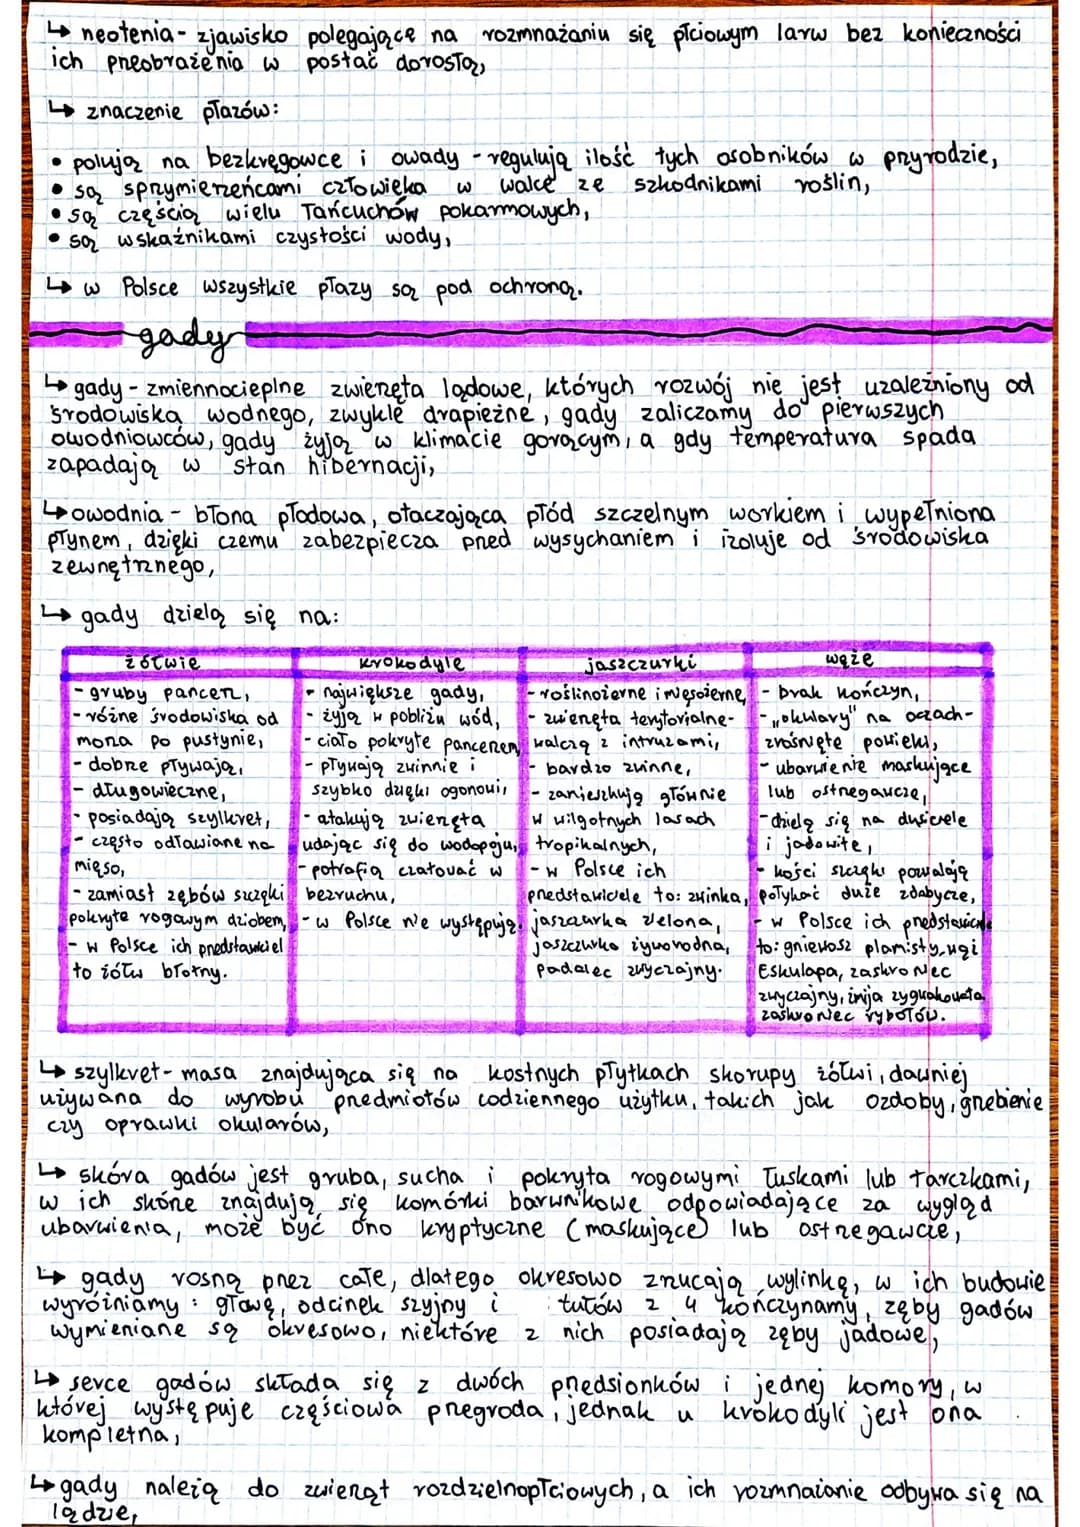 ↳ neotenia - zjawisko polegające na rozmnażaniu się płciowym larw bez konieczności
ich przeobrażenia w postać dorosłą,
↳ znaczenie płazów:
• polują na bezkręgowce i owady - regulują ilość tych osobników w przyrodzie,
• są sprzymierzeńcami człowieka w walce ze szkodnikami roślin,
• są częścią wielu łańcuchów pokarmowych,
• są wskaźnikami czystości wody,
↳ w Polsce wszystkie płazy są pod ochroną.
gady
↳ gady - zmiennocieplne zwierzęta lądowe, których rozwój nie jest uzależniony od
środowiska wodnego, zwykle drapieżne, gady zaliczamy do pierwszych
owodniowców, gady żyją w klimacie gorącym, a gdy temperatura spada
zapadają w stan hibernacji,
↳ owodnia - błona płodowa, otaczająca płód szczelnym workiem i wypełniona
płynem, dzięki czemu zabezpiecza przed wysychaniem i izoluje od środowiska
zewnętrznego,
↳ gady dzielą się na:
żółwie
- gruby pancerz,
- różne środowiska od
morza po pustynie,
- dobrze pływają,
- długowieczne,
- posiadają szylkret,
- często odławiane na
mięso,
- zamiast zębów szczęki
pokryte rogowym dziobem,
- w Polsce ich przedstawiciel
to żółw błotny.
krokodyle
- największe gady,
- żyją w pobliżu wód,
- ciało pokryte pancerzem,
- pływają zwinnie i
szybko dzięki ogonowi,
- atakują zwierzęta
udając się do wodopoju,
- potrafią czatować w
bezruchu,
- w Polsce nie występują.
jaszczurki
- roślinożerne i mięsożerne,
- zwierzęta terytorialne -
walczą z intruzami,
- bardzo zwinne,
- zamieszkują głównie
w wilgotnych lasach
tropikalnych,
- w Polsce ich
przedstawiciele to: zwinka,
jaszczurka zielona,
jaszczurka żyworodna,
padalec zwyczajny.
węże
- brak kończyn,
- „okulary" na oczach -
zrośnięte powieki,
- ubarwienie maskujące
lub ostrzegawcze,
- dzielą się na dusiciele
i jadowite,
- kości szczęki pozwalają
połykać duże zdobycze,
- w Polsce ich przedstawiciele
to: gniewosz plamisty, wąż
Eskulapa, zaskroniec
zwyczajny, żmija zygzakowata,
zaskroniec rybołów.
↳ szylkret - masa znajdująca się na kostnych płytkach skorupy żółwi, dawniej
używana do wyrobu przedmiotów codziennego użytku, takich jak ozdoby, grzebienie
czy oprawki okularów,
↳ skóra gadów jest gruba, sucha i pokryta rogowymi łuskami lub tarczkami,
w ich skórze znajdują się komórki barwnikowe odpowiadające za wygląd
ubarwienia, może być ono kryptyczne (maskujące) lub ostrzegawcze,
↳ gady rosną przez całe, dlatego okresowo zrzucają wylinkę, w ich budowie
wyróżniamy: głowę, odcinek szyjny i tułów z 4 kończynamy, zęby gadów
wymieniane są okresowo, niektóre z nich posiadają zęby jadowe,
↳ serce gadów składa się z dwóch przedsionków i jednej komory, w
której występuje częściowa przegroda, jednak u krokodyli jest ona
kompletna,
↳ gady należą do zwierząt rozdzielnopłciowych, a ich rozmnażanie odbywa się na
lądzie,